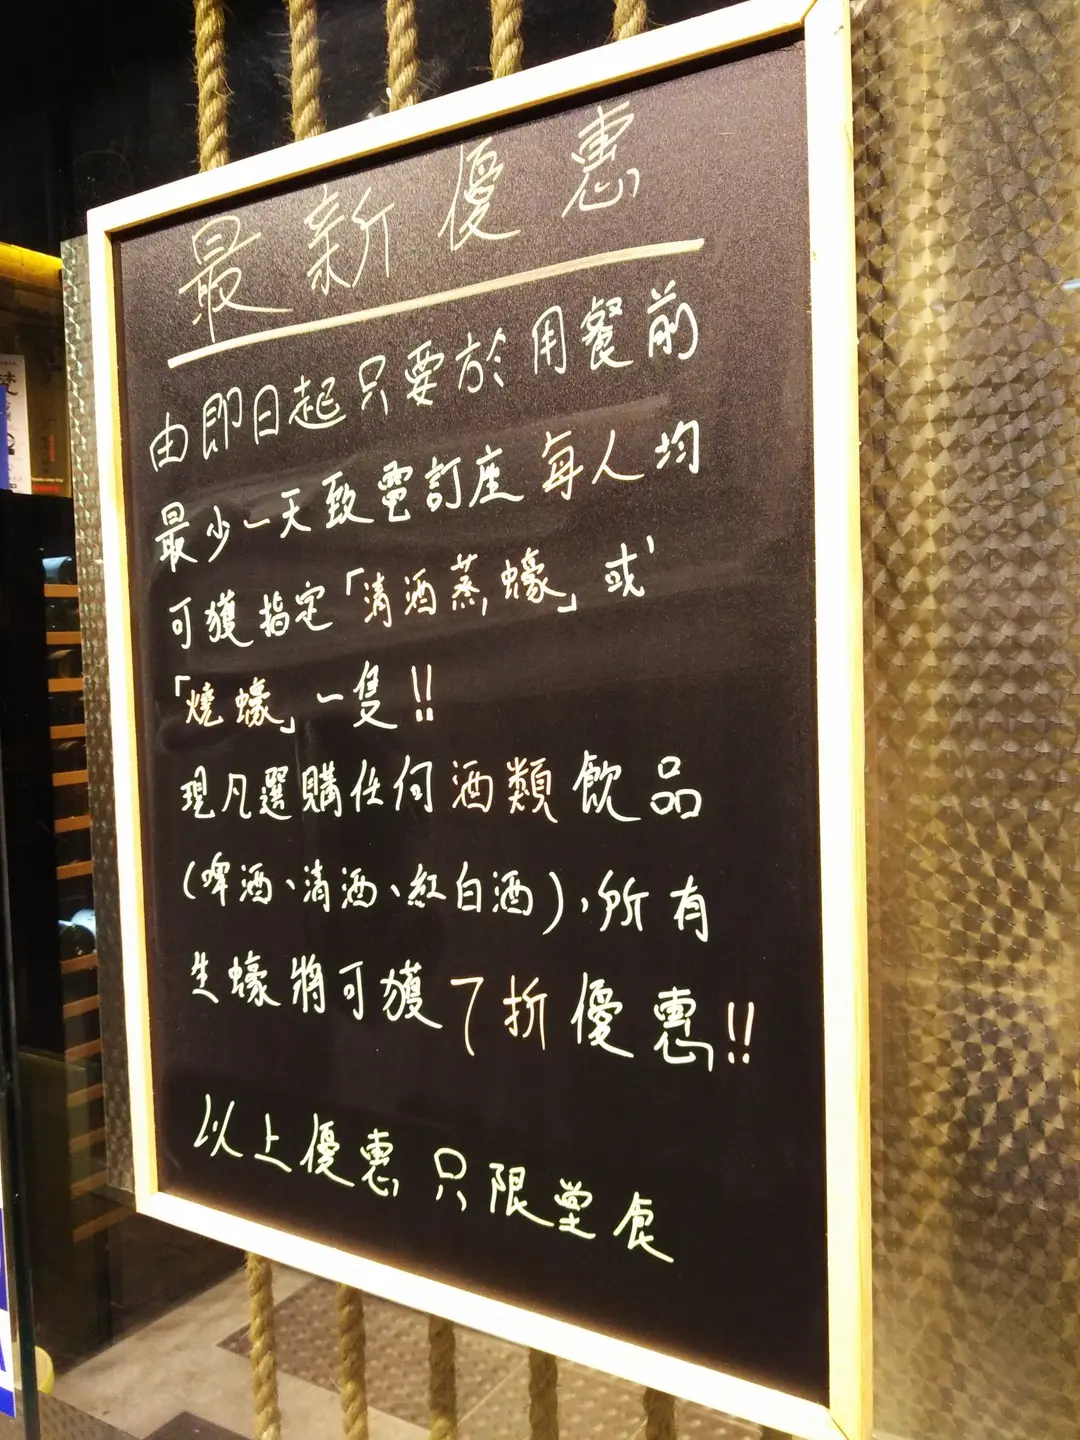 最新優惠
由即日起只要於用餐前
最少一天致電訂座每人均
可獲指定「清酒蒸蠔」或
「燒蠔」一隻!!
現凡選購任何酒類飲品
(啤酒、清酒、紅白酒),所有
生蠔將可獲7折優惠!!
以上優惠只限堂食